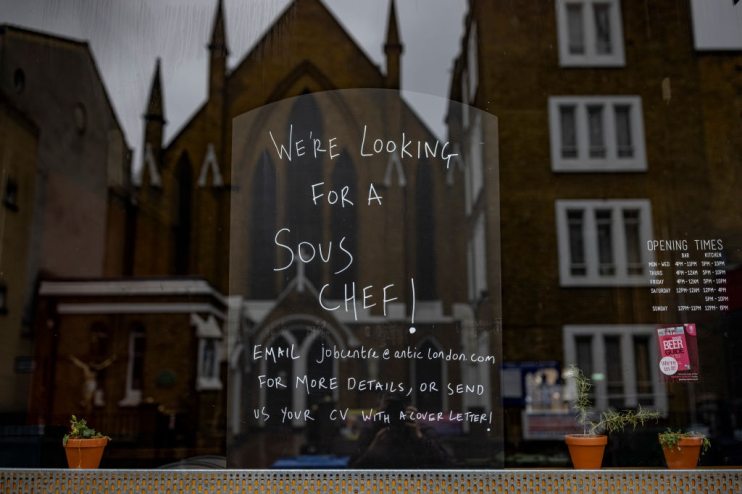 WE'RE LOOKING
FOR A
SOUS
CHEF!
EMAIL jobcentre@anticlondon.com
FOR MORE DETAILS, OR SEND
US YOUR CV WITH A COVER LETTER!
OPENING TIMES
BAR KITCHEN
MON - WED 4PM-11PM 5PM-10PM
THURS 4PM-12AM 5PM-10PM
FRIDAY 4PM-12AM 5PM-10PM
SATURDAY 12PM-12AM 12PM-4PM
5PM-10PM
SUNDAY 12PM-11PM
BEER
GUIDE